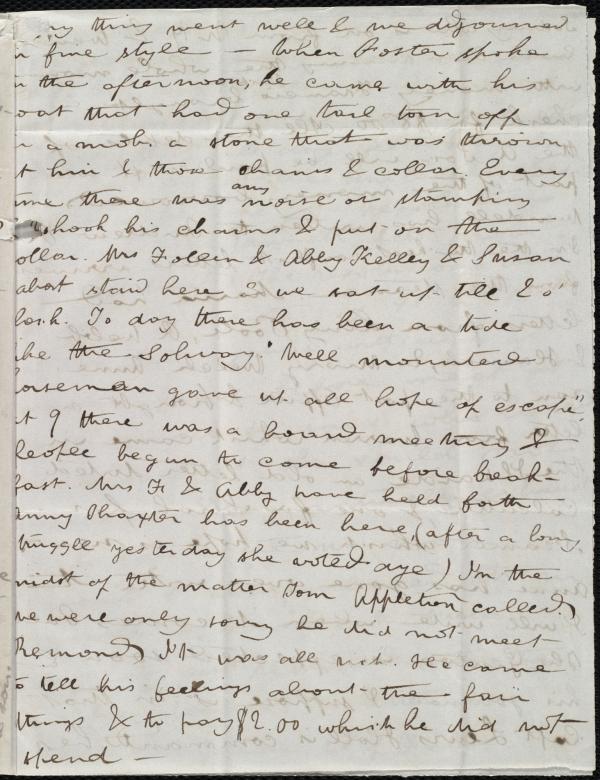 ry thing went well & we adjourned
n fine style — When Foster spoke
n the afternoon, he came with his
oat that had one tail torn off
n a mob. a stone that was thrown
t him & those chains & collar. Every
me there was any noise or stamping
shook his chains & put on the
ollar. Mrs Follen & Abby Kelley & Susan
abot staid here & we sat up till 2 o'
lock. To day there has been a tide
ike the Solway. "Well mounted
orseman gave up all hope of escape".
t 9 there was a board meeting &
eople begun to come before break-
fast. Mrs F & Abby have held forth
anny Thaxter has been here, (after a long
truggle yesterday she voted aye) In the
midst of the matter Tom Appleton called,
we were only sorry he did not meet
Remond, It was all   He came
o tell his feelings about the fair
things & to pay $2.00 which he did not
spend —